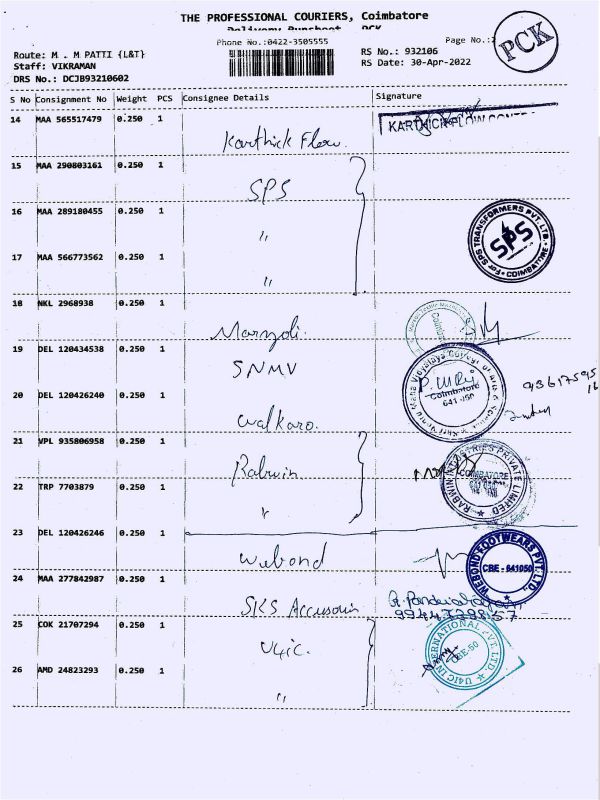 THE PROFESSIONAL COURIERS, Coimbatore
Delivery Runsheet PCK
Phone No.:0422-3505555
Page No.:2
PCK
Route: M . M PATTI {L&T}
Staff: VIKRAMAN
DRS No.: DCJB93210602
RS No.: 932106
RS Date: 30-Apr-2022
S No Consignment No Weight PCS Consignee Details Signature
14 MAA 565517479 0.250 1
Karthick Flow.
KARTHICK FLOW CONT
15 MAA 290803161 0.250 1
SPS
16 MAA 289180455 0.250 1
"
For SPS TRANSFORMERS PVT. LTD. COIMBATORE
SPS
17 MAA 566773562 0.250 1
"
18 NKL 2968938 0.250 1
Marzoli.
19 DEL 120434538 0.250 1
SNMV
Coimbatore
641 050
20 DEL 120426240 0.250 1
Walkaro.
21 VPL 935806958 0.250 1
Rabwin
RABWIN INDUSTRIES PRIVATE LIMITED
COIMBATORE
22 TRP 7703879 0.250 1
"
23 DEL 120426246 0.250 1
Webond
WEBOND FOOTWEARS PVT. LTD.,
CBE - 641050
24 MAA 277842987 0.250 1
SKS
25 COK 21707294 0.250 1
U4ic.
U4IC INTERNATIONAL PVT. LTD.
CBE-50
26 AMD 24823293 0.250 1
"